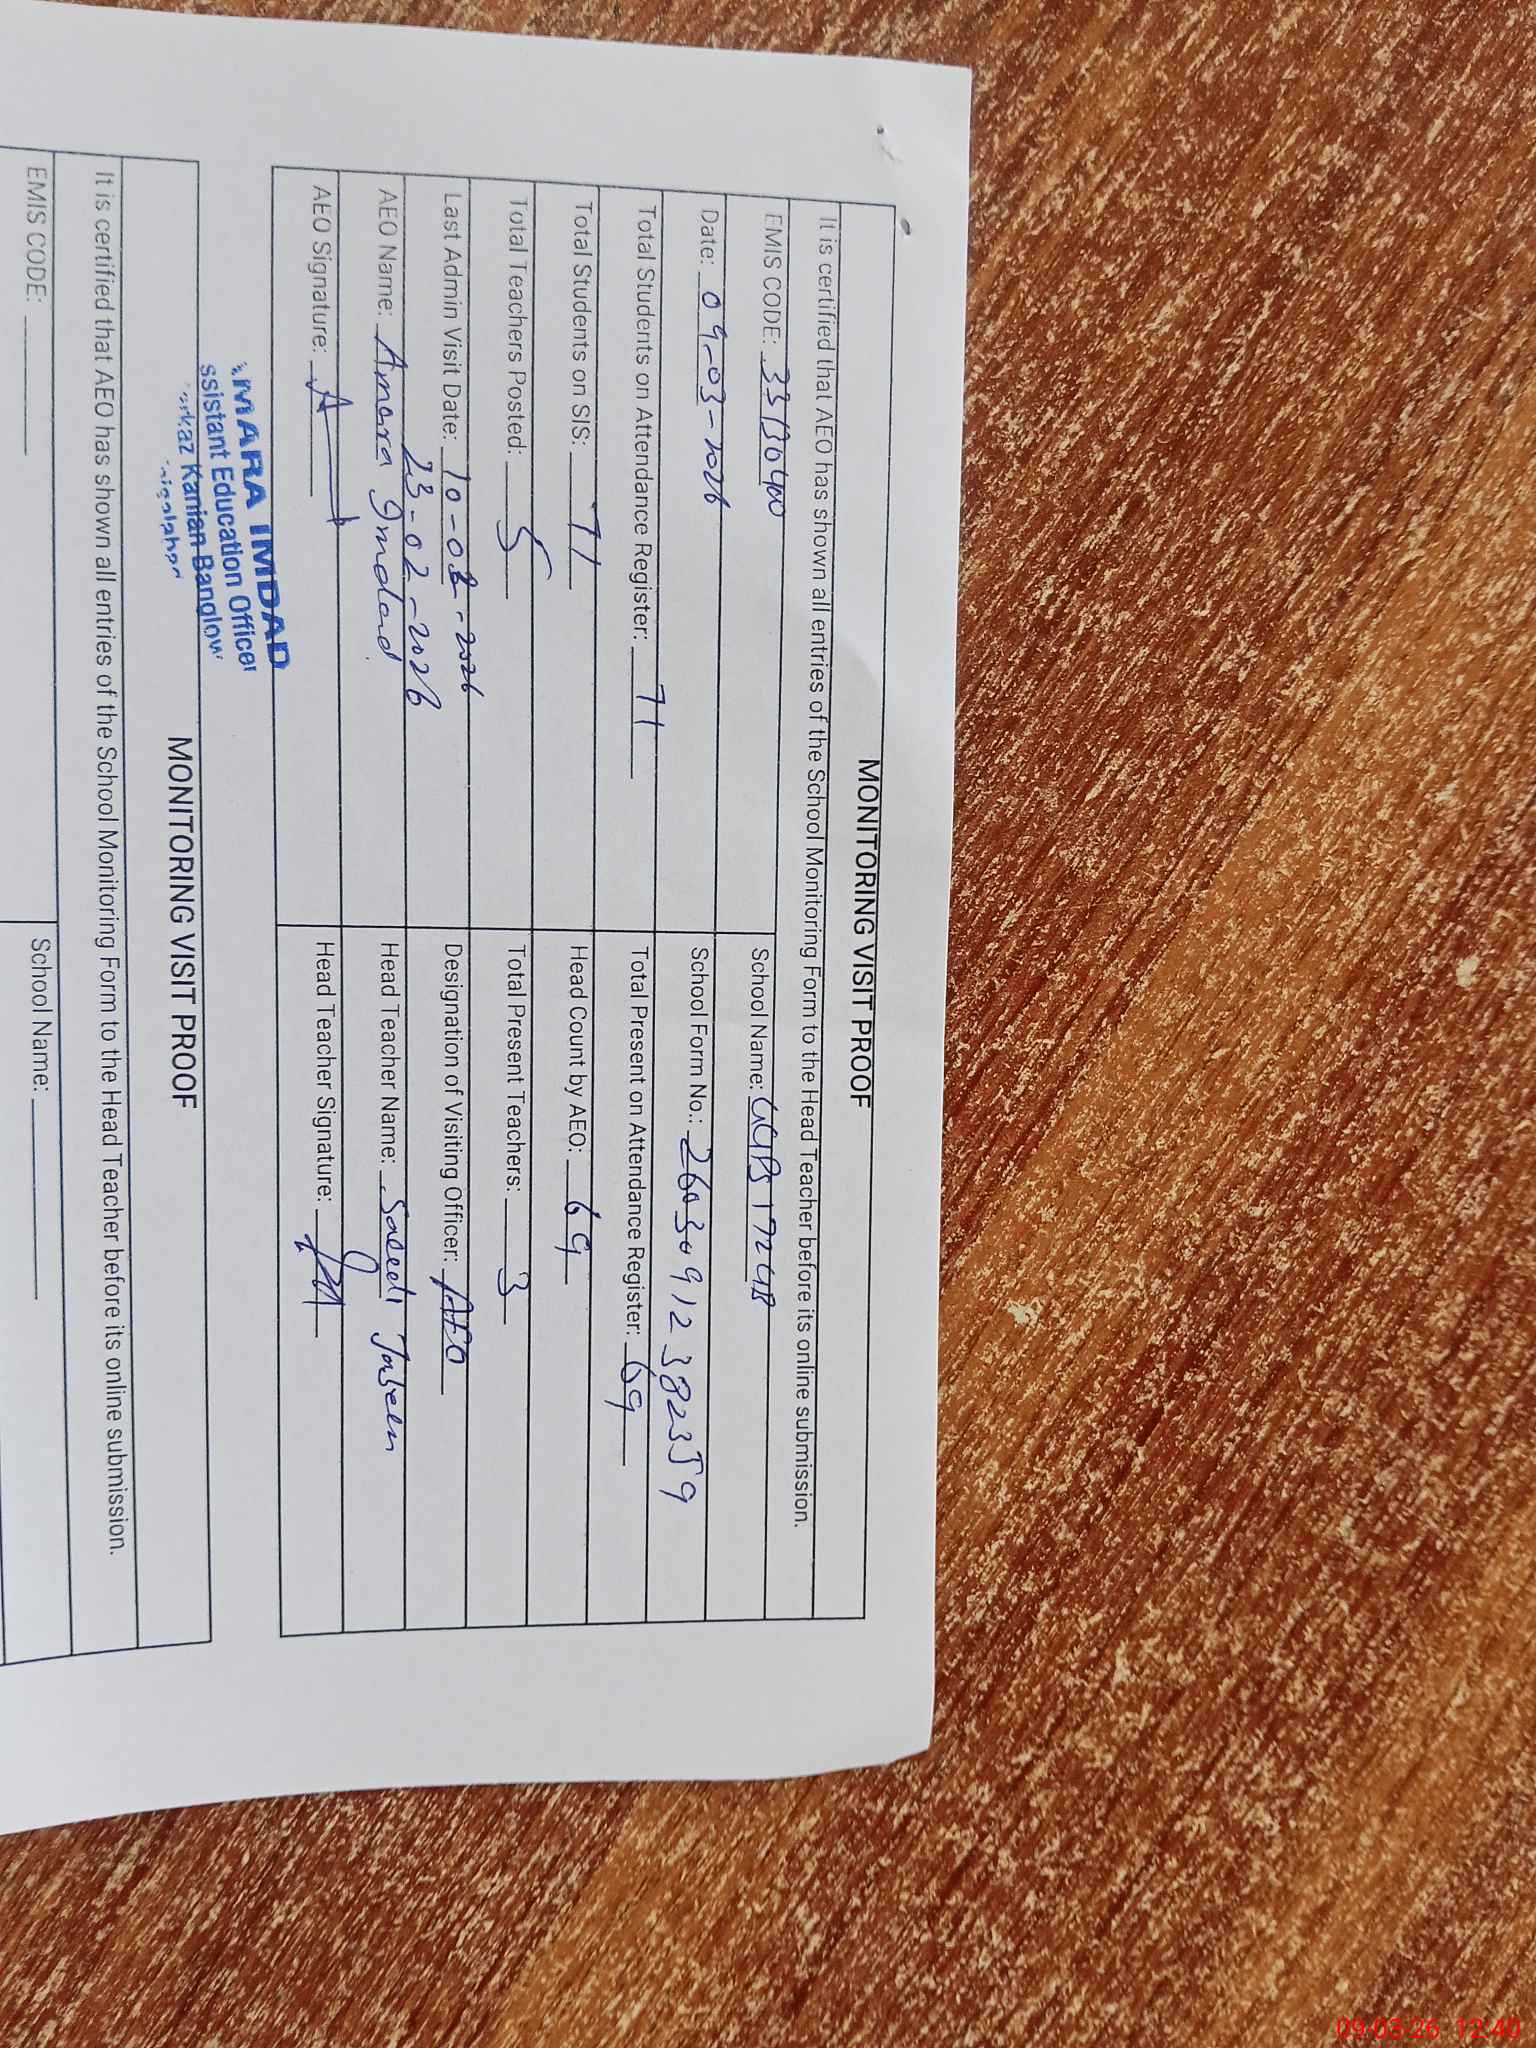 MONITORING VISIT PROOF
It is certified that AEO has shown all entries of the School Monitoring Form to the Head Teacher before its online submission.
EMIS CODE: 33130400 School Name: GGPS 172 GB
Date: 09-03-2026 School Form No.: 26030912382359
Total Students on Attendance Register: 71 Total Present on Attendance Register: 69
Total Students on SIS: 71 Head Count by AEO: 69
Total Teachers Posted: 5 Total Present Teachers: 3
Last Admin Visit Date: 10-03-2026 Designation of Visiting Officer: AEO
23-02-2026
AEO Name: Amara Imdad Head Teacher Name: Jabeen
AEO Signature: Head Teacher Signature:
MARA IMDAD
ssistant Education Officer
Kanian Banglow
MONITORING VISIT PROOF
It is certified that AEO has shown all entries of the School Monitoring Form to the Head Teacher before its online submission.
EMIS CODE: School Name:
09-03-26 12:40